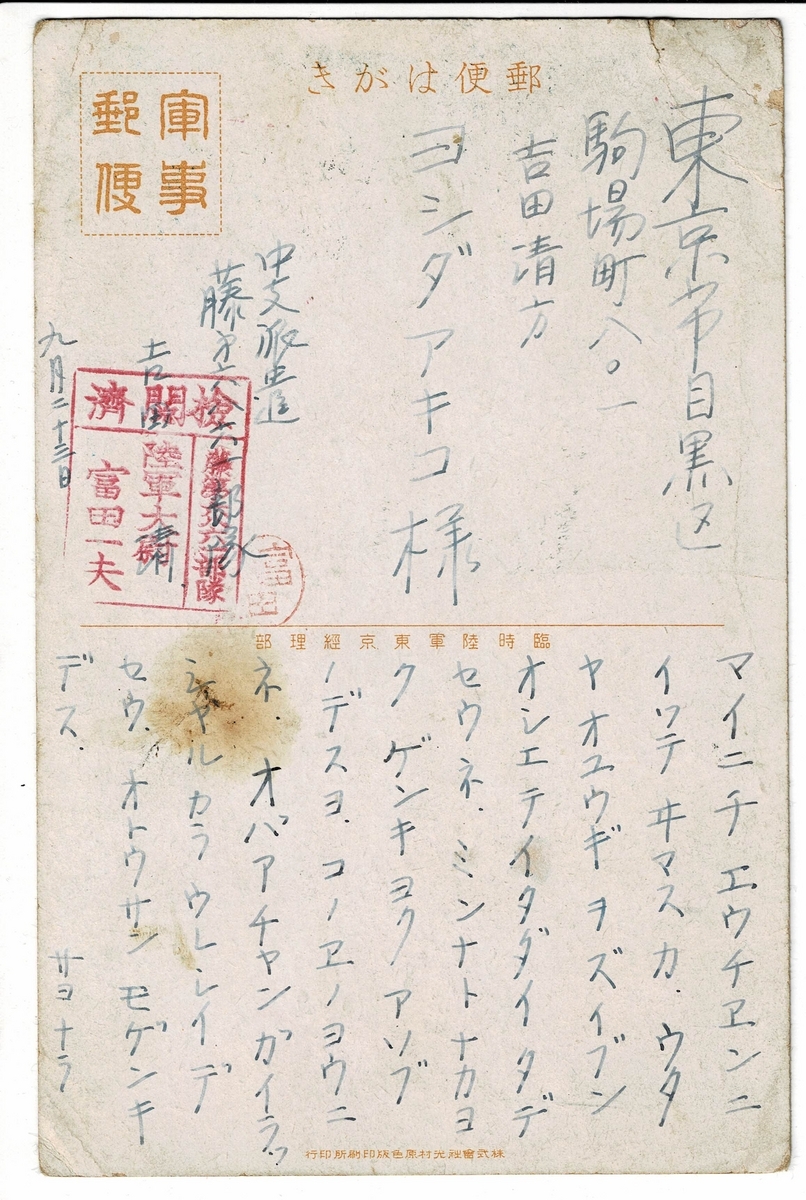 郵便はがき
軍事
郵便
東京市目黒区
駒場町八〇一
吉田清方
ヨシダアキコ様
中支派遣
藤第六八六一部隊
吉田 清
九月二十三日
検閲済
陸軍大尉
富田一夫
富田
臨時陸軍東京經理部
マイニチ エウチヱンニ
イツテ ヰマスカ.ウタ
ヤオユウギ ヲズイブン
オシエテイタダイタデ
セウネ.ミンナトナカヨ
ク ゲンキヨク アソブ
ノデスヨ.コノヱノヨウニ
ネ.オバアチヤンガイラッ
シヤルカラ ウレシイデ
セウ.オトウサンモゲンキ
デス. サヨナラ
株式會社光村原色版印刷所印行